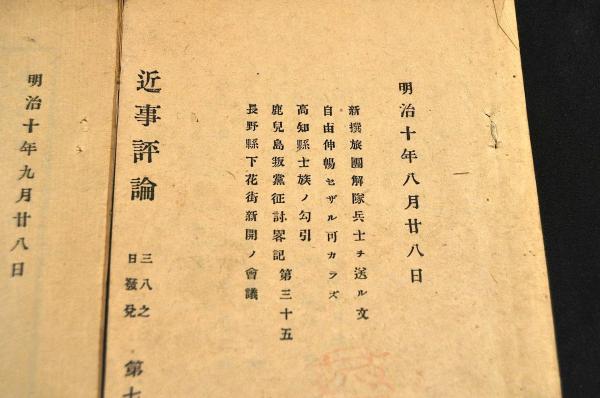 明治十年八月廿八日
新撰旅團解隊兵士ヲ送ル文
自由伸暢セザル可カラズ
高知縣士族ノ勾引
鹿兒島叛黨征討畧記 第三十五
長野縣下花街新開ノ會議
近事評論
三八之
日發兌
第七
明治十年九月廿八日